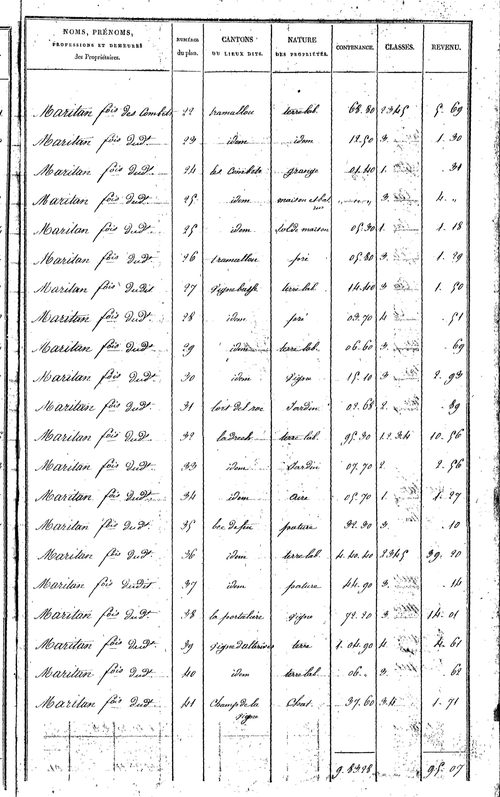 NOMS, PRÉNOMS, PROFESSIONS ET DEMEURES des Propriétaires. NUMÉROS du plan. CANTONS OU LIEUX DITS. NATURE DES PROPRIÉTÉS. CONTENANCE. CLASSES. REVENU.
Maritan fois des Combets 22 tramullou terre lab. 68.80 2345 5. 69
Maritan fois dudt 23 idem idem 12.50 3 1. 30
Maritan fois dudt 24 les Combets grange 01.40 1 . 31
Maritan fois dudt 25 idem maison et bat 3 4. „
Maritan fois dudt 25 idem sol de maison 05.30 1 1. 18
Maritan fois dudt 26 tramullou pré 05.80 3 1. 29
Maritan fois dudit 27 vigne basse terre lab. 14.40 3 1. 50
Maritan fois dudt 28 idem pré 03.70 4 . 51
Maritan fois dudt 29 idem terre lab. 06.60 3 . 69
Maritan fois dudt 30 idem vigne 15.10 3 2. 93
Maritan fois dudt 31 Jardin 02.68 2 . 89
Maritan fois dudt 32 ladrech terre lab. 95.30 1234 10. 56
Maritan fois dudt 33 idem Jardin 07.70 2 2. 56
Maritan fois dudt 34 idem aire 05.70 1 1. 27
Maritan fois dudt 35 pature 32.30 3 . 10
Maritan fois dudt 36 idem terre lab. 4.40.40 2345 39. 20
Maritan fois dudit 37 idem pature 44.90 3 . 14
Maritan fois dudt 38 la vigne 72.20 3 14. 01
Maritan fois dudt 39 terre 1.04.90 4 4. 61
Maritan fois dudt 40 idem terre lab. 06. „ 3 . 62
Maritan fois dudt 41 Champ de la 37.60 34 1. 71
vigne
9.8328 95. 07